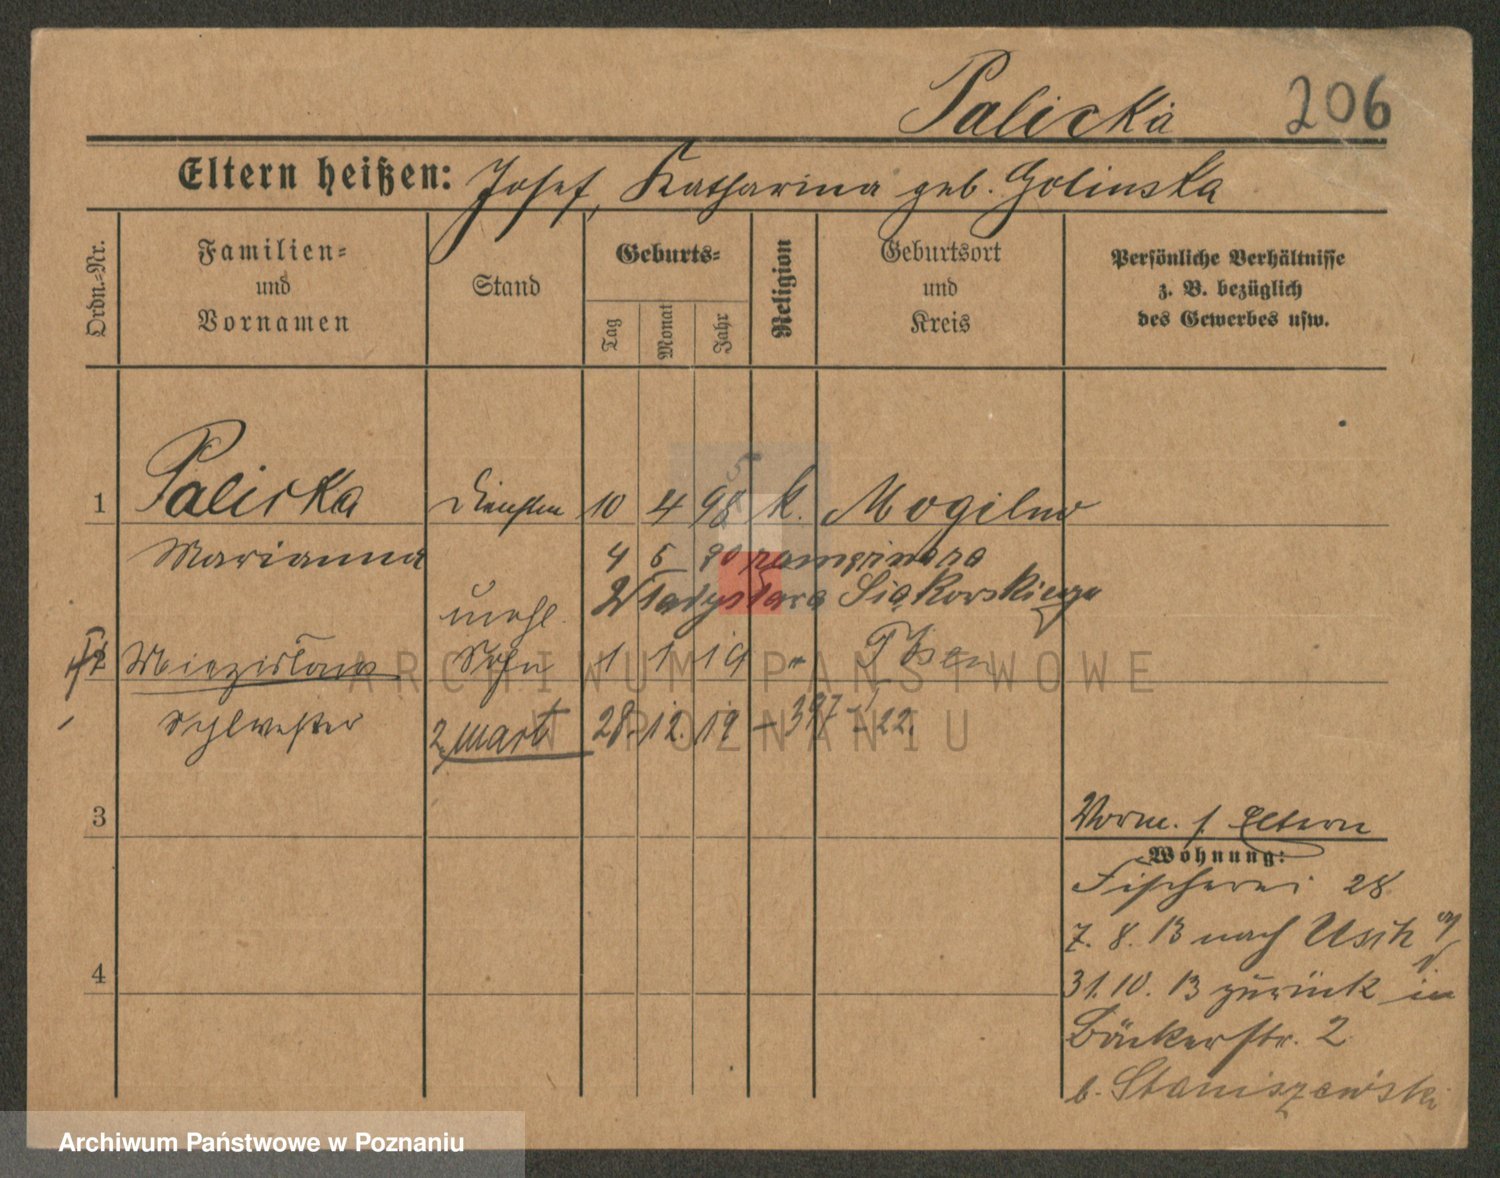 Palicka 206
Eltern heißen: Josef, Katharina geb. Golinska
Ordn.-Nr.
Familien-
und
Vornamen
Stand
Geburts-
Tag
Monat
Jahr
Religion
Geburtsort
und
Kreis
Persönliche Verhältnisse
z. B. bezüglich
des Gewerbes usw.
1 Palicka 10 4 98 k. Mogilno
Marianna 4 5 20
Władysława Siąkorskiego
unehl.
2 Miezislaus Sohn 1 1 19 " Posen
Sylwester 2 mart 28. 12. 19 - 397 22.
3
Vorm. s. Eltern
Wohnung:
Fischerei 28
7. 8. 13 nach Usch
4
31. 10. 13 zurück in
Bäckerstr. 2
b. Staniszewski
ARCHIWUM PAŃSTWOWE
W POZNANIU
Archiwum Państwowe w Poznaniu